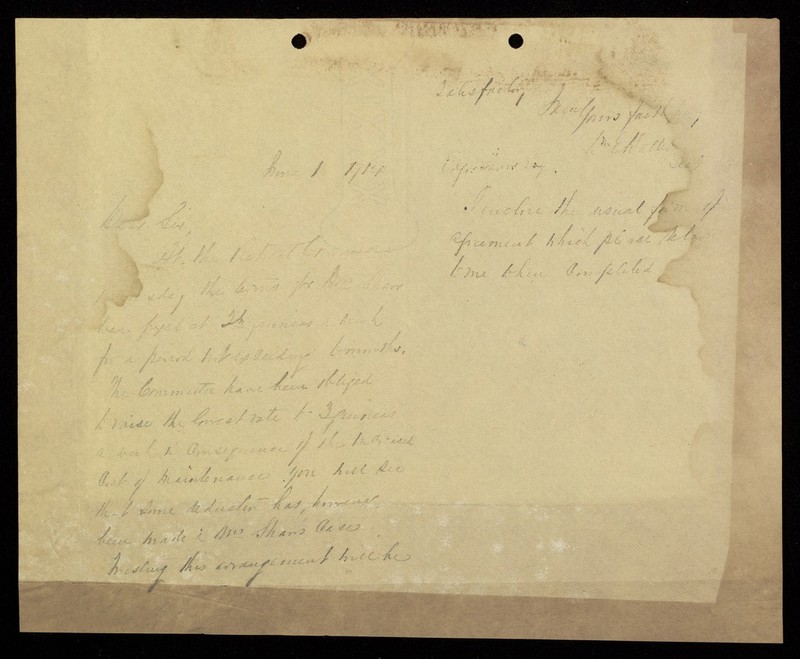 June 1 1914
Dear Sir,
At the last
the terms for Mrs Shaw
been fixed at 2½ guineas a week
for a period not exceeding 6 months.
The Committee have been obliged
to raise the lowest rate to 3 guineas
a week in consequence of the increased
Cost of maintenance. You will see
that some reduction has, however,
been made in Mrs Shaw's Case.
Trusting this arrangement will be
Satisfactory
Yours faith
I enclose the usual form of
agreement which please
to me when Completed